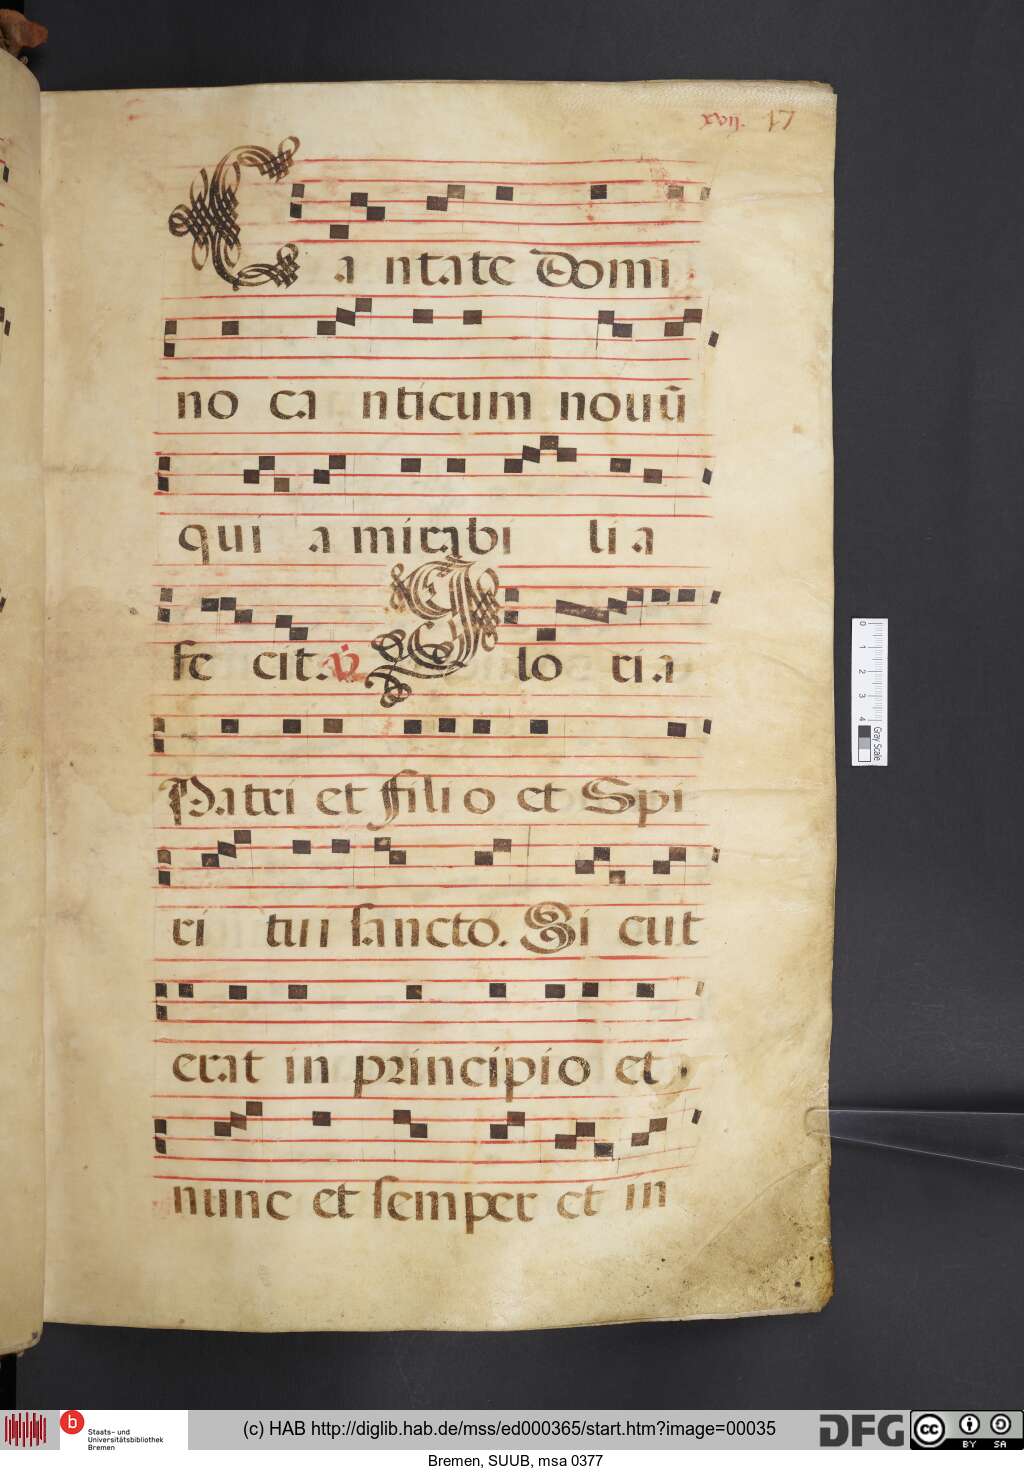 xxvij. 17
Ca ntate Domi
no ca nticum nouū
qui a mirabi lia
fe cit. v̇ Glo ria
Patri et filio et Spi
ri tui sancto. Si cut
erat in principio et
nunc et semper et in
0 1 2 3 4 Gray Scale
b Staats- und
Universitätsbibliothek
Bremen
(c) HAB http://diglib.hab.de/mss/ed000365/start.htm?image=00035
DFG cc BY SA
Bremen, SUUB, msa 0377